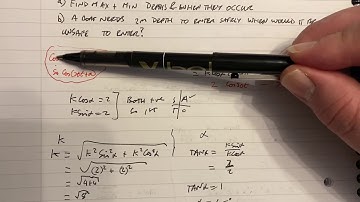 a) FIND MAX + MIN DEPTHS & WHEN THEY OCCUR
b) A BOAT NEEDS 2m DEPTH TO ENTER SAFELY WHEN WOULD IT BE
UNSAFE TO ENTER?
Kcosα = 2
Ksinα = 2
BOTH +ve
SO 1ST
S A
T C
K
K = √K²sin²α + K²cos²α
= √(2)² + (2)²
= √4+4
= √8
α
TANα = Ksinα
Kcosα
= 2
2
TANα = 1